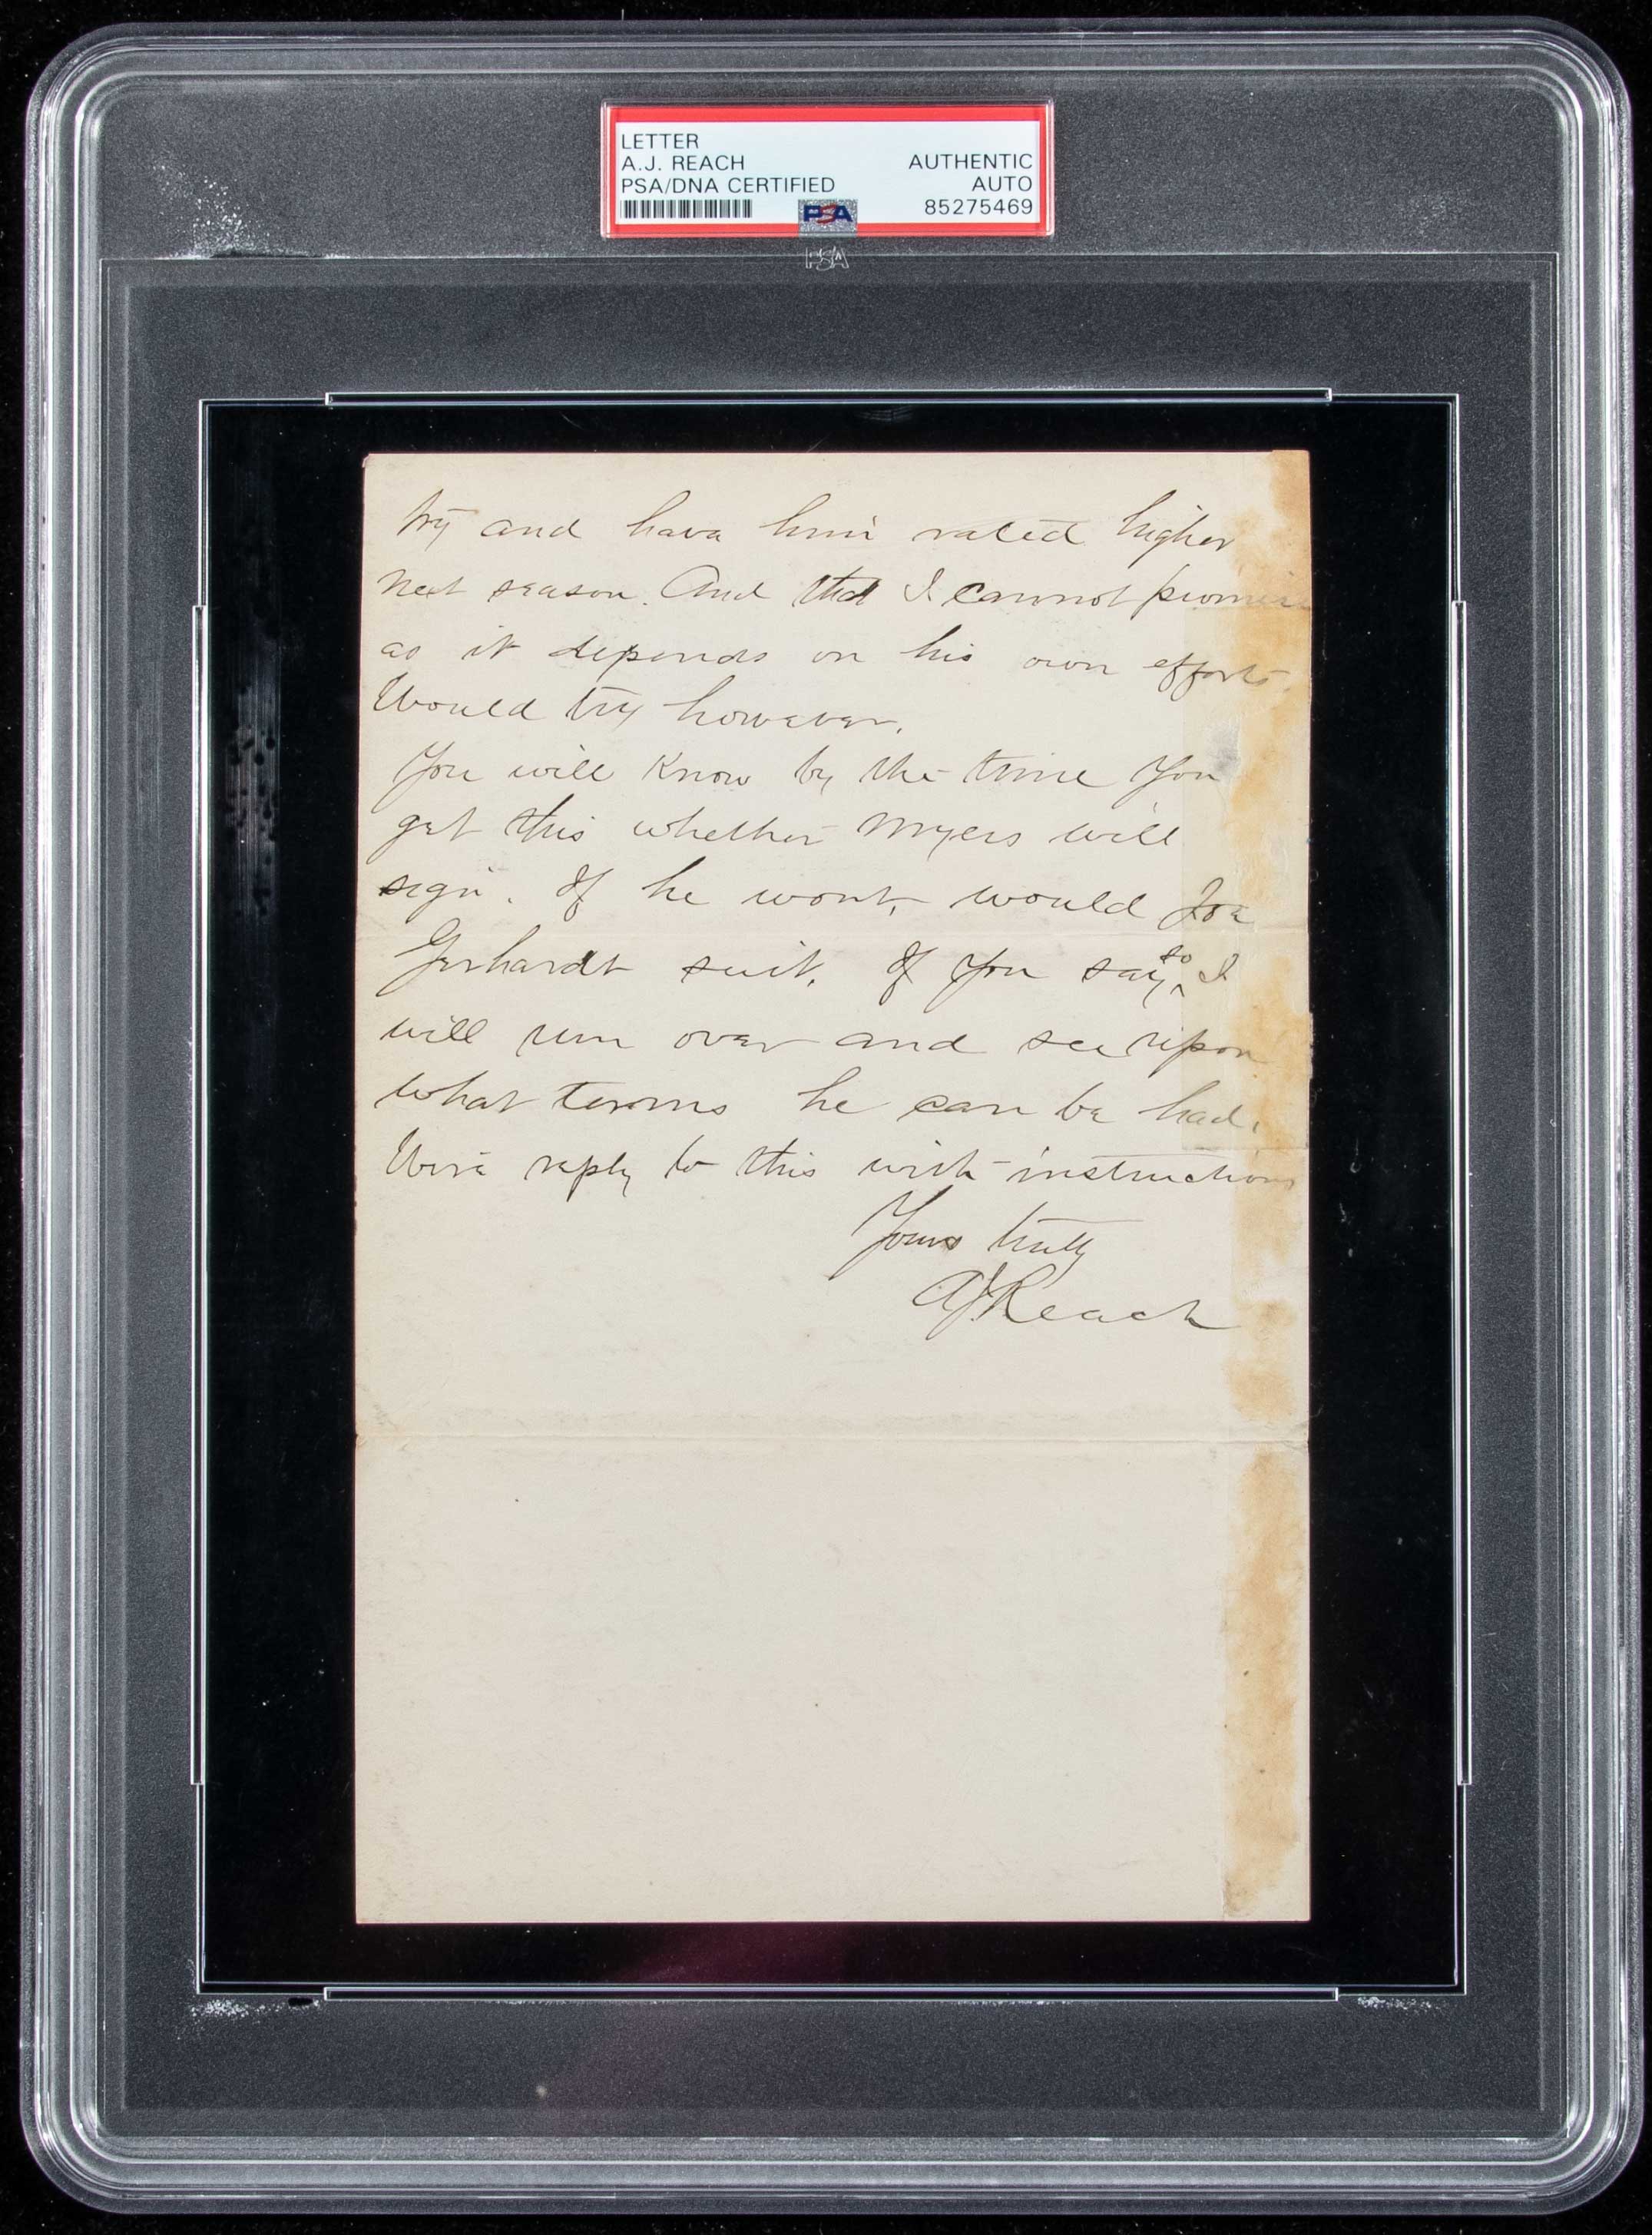 LETTER
A.J. REACH
PSA/DNA CERTIFIED
AUTHENTIC
AUTO
85275469
PSA
PSA
try and have him rated higher
next season. And that I cannot promise
as it depends on his own efforts.
Would try however.
You will Know by the time You
get this whether Myers will
sign. If he wont, would Joe
Gerhardt suit. If you say so I
will run over and see upon
what terms he can be had.
Wire reply to this with instructions
Yours truly
AJReach